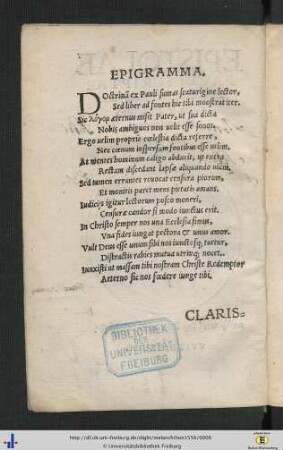 EPIGRAMMA.
DOctrinā ex Pauli sumas scaturigine lector,
Sed liber ad fontes hic tibi monstrat iter.
Sic λόγον æternus misit Pater, ut sua dicta
Nobis ambiguos non uelit esse sonos.
Ergo uelim proprie cœlestia dicta referre,
Nec cœnum inspersum fontibus esse uelim.
At mentes hominum caligo abducit, ut extra
Rectam discedant lapsæ aliquando uiam.
Sed tamen errantes reuocat censura piorum,
Et monitis paret mens pietatis amans.
Iudicijs igitur lectorum posco moneri,
Censuræ candor si modo iunctus erit.
In Christo semper nos una Ecclesia simus,
Vna fides iungat pectora & unus amor.
Vult Deus esse unum sibi nos iunctosq; tuetur,
Distractis rabies mutua utrinq; nocet.
Iunxisti ut massam tibi nostram Christe Redemptor
Aeterno sic nos fœdere iunge tibi.
CLARIS=
BIBLIOTHEK
DER
UNIVERSITÄT
FREIBURG
http://dl.ub.uni-freiburg.de/diglit/melanchthon1556/0006
© Universitätsbibliothek Freiburg